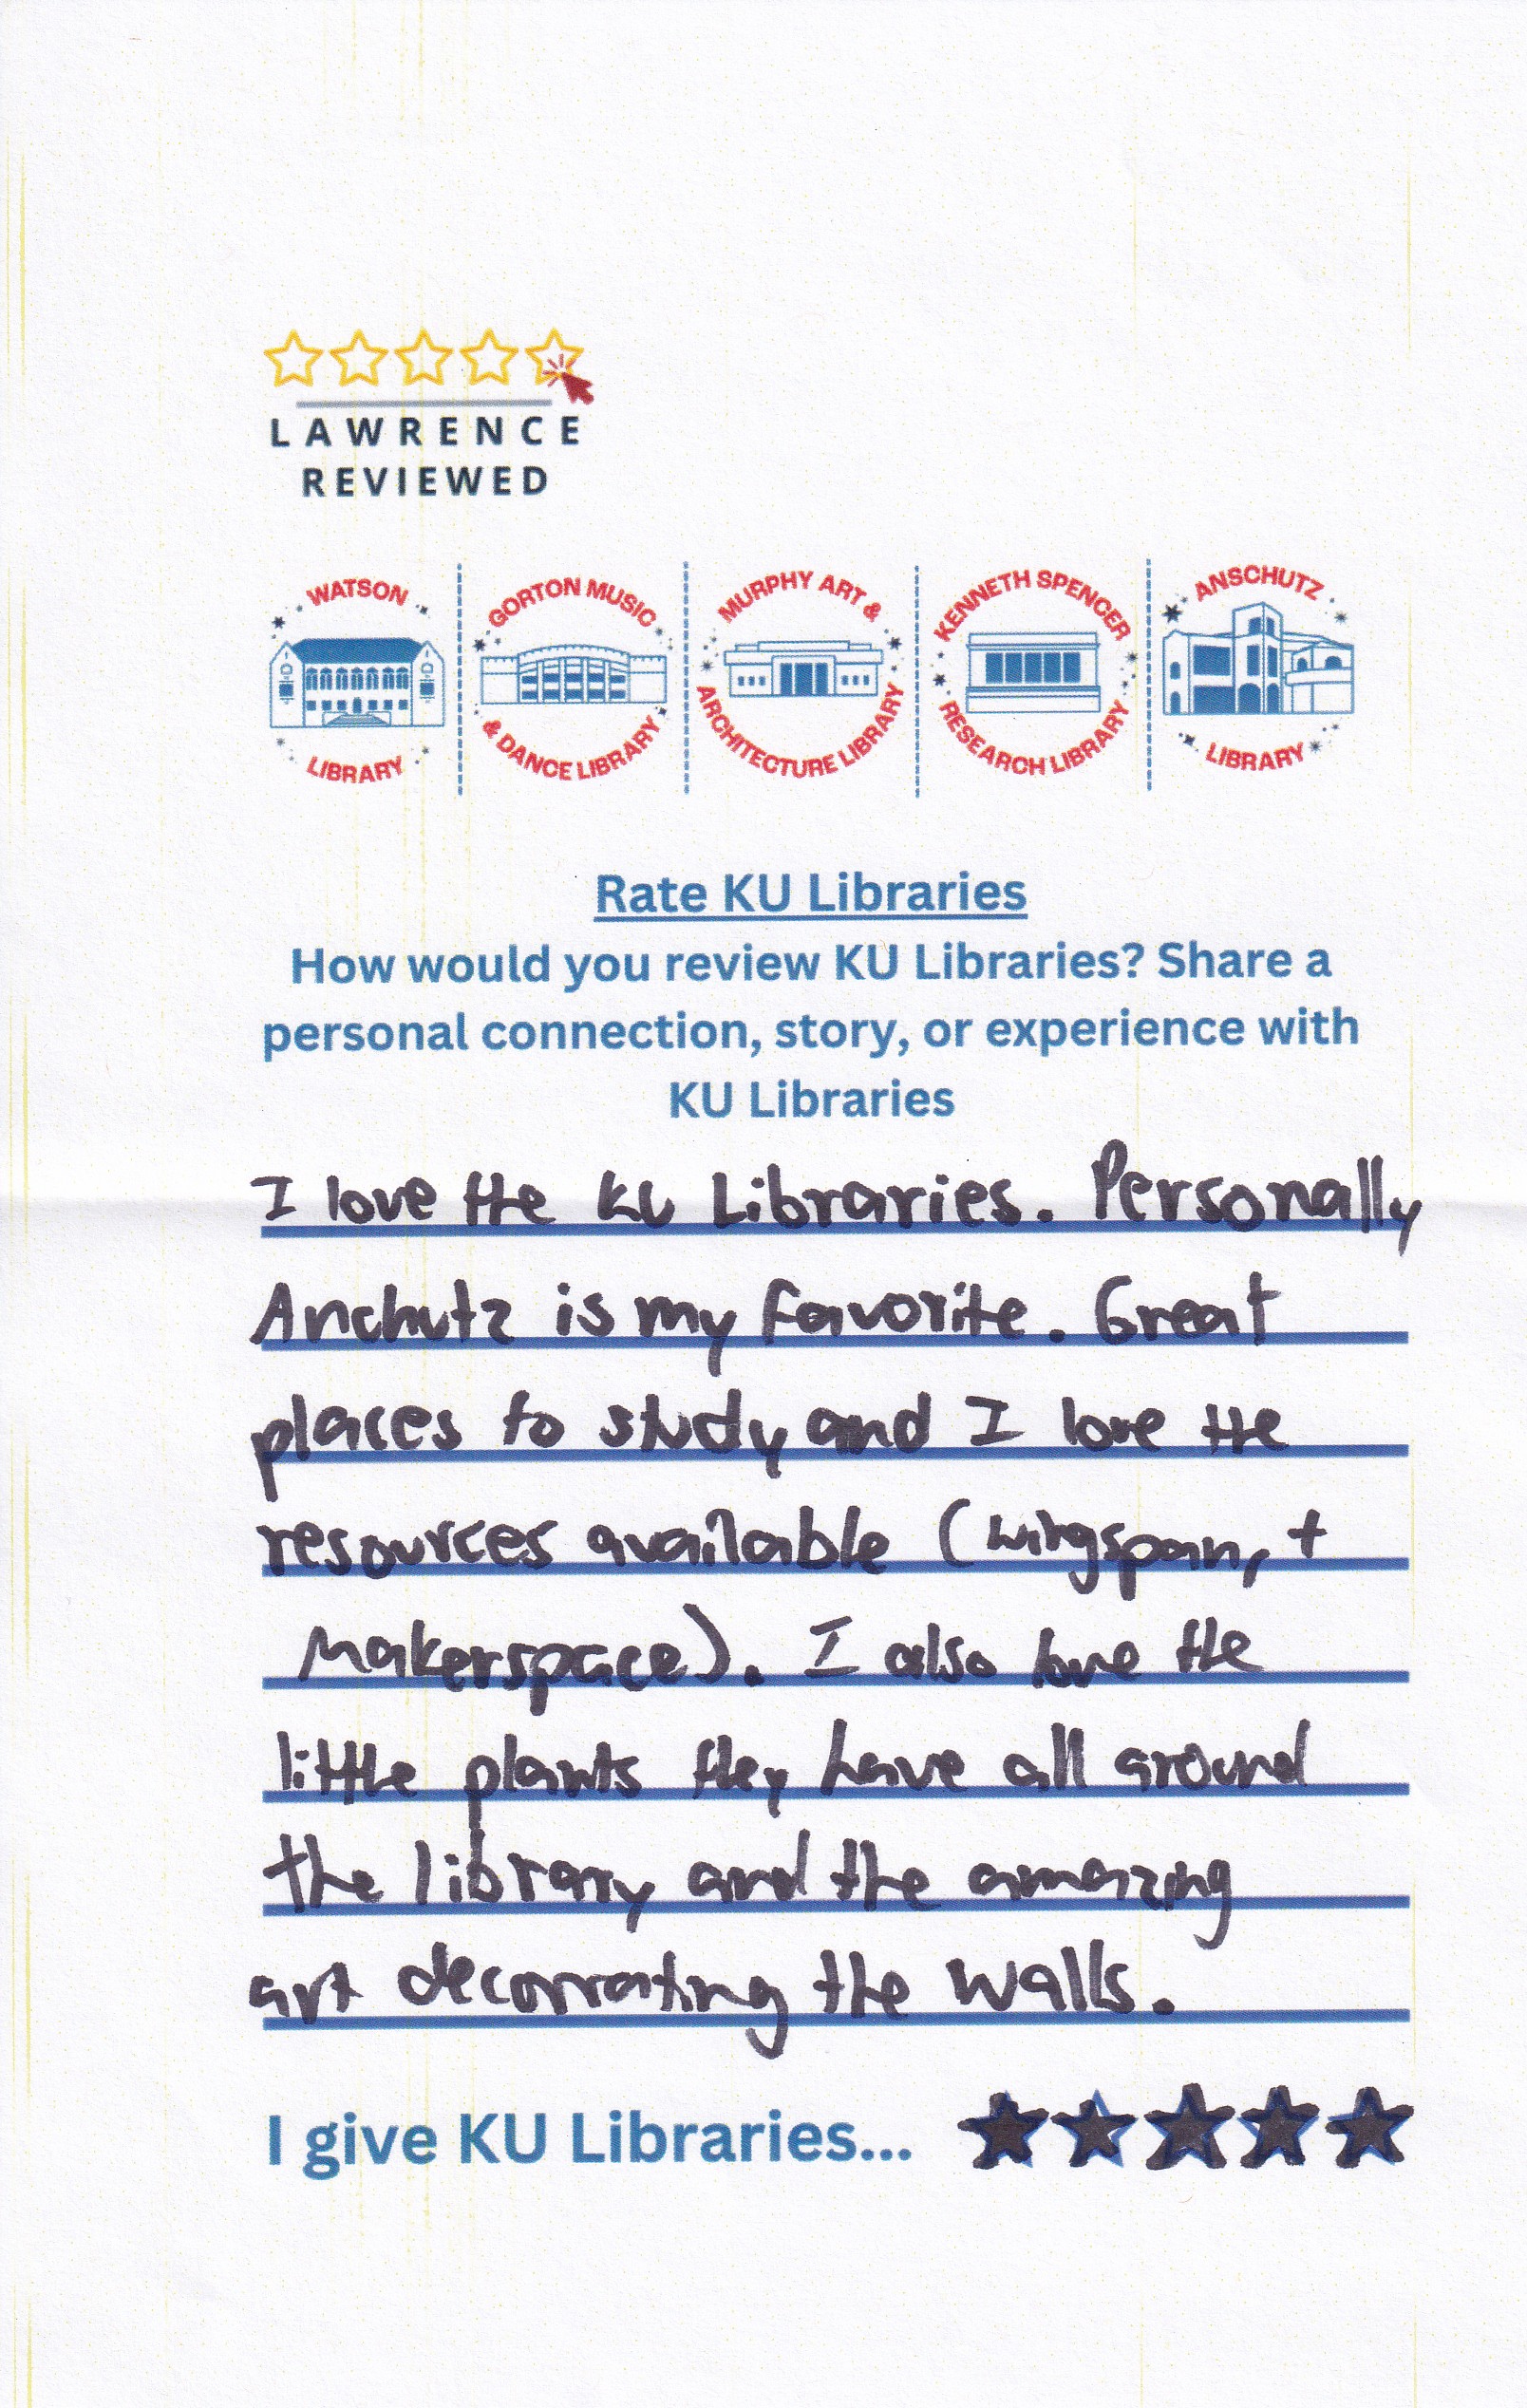 LAWRENCE
REVIEWED
WATSON
LIBRARY
GORTON MUSIC
& DANCE LIBRARY
MURPHY ART &
ARCHITECTURE LIBRARY
KENNETH SPENCER
RESEARCH LIBRARY
ANSCHUTZ
LIBRARY
Rate KU Libraries
How would you review KU Libraries? Share a
personal connection, story, or experience with
KU Libraries
I love the KU Libraries. Personally
Anchutz is my favorite. Great
places to study and I love the
resources available (wingspan, +
Makerspace). I also love the
little plants they have all around
the library and the amazing
art decorrating the walls.
I give KU Libraries...